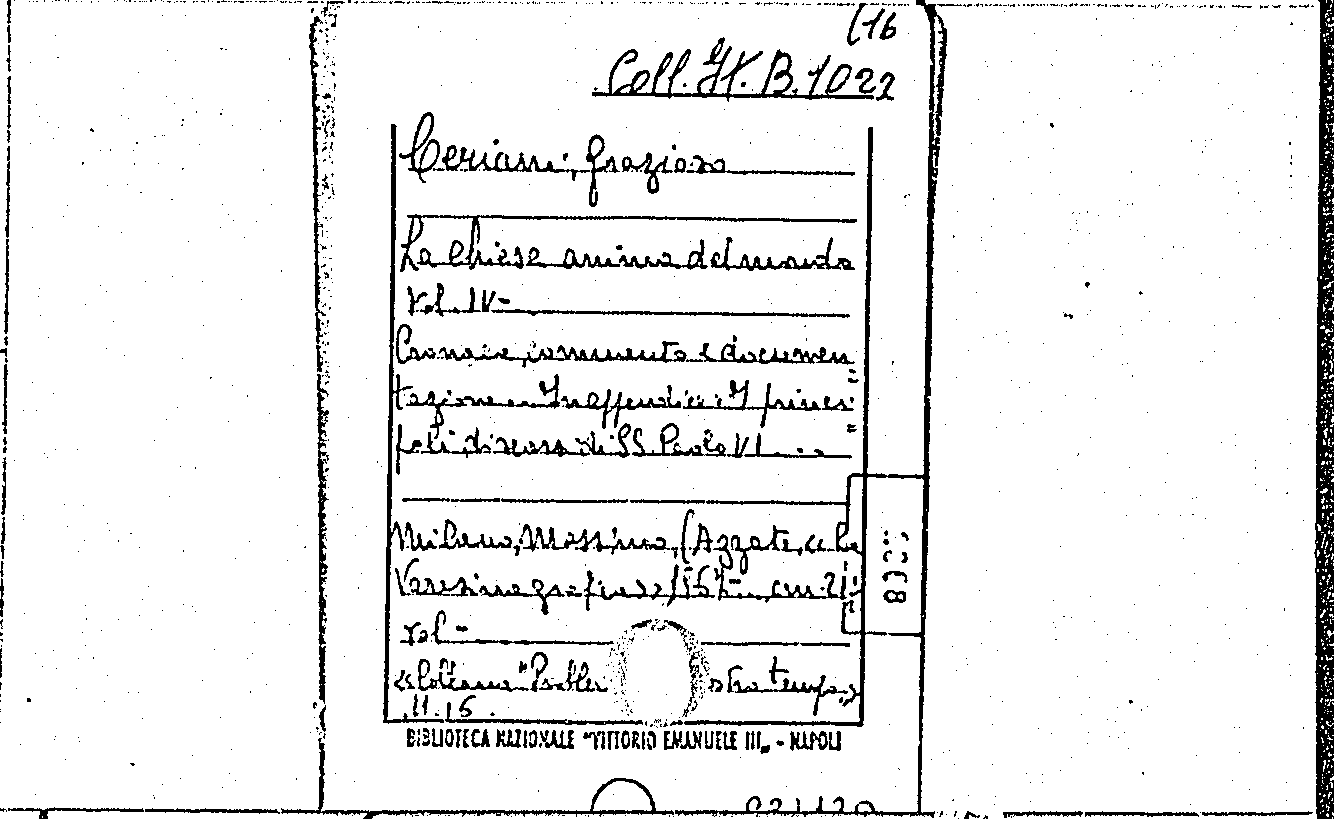 (16
Coll. It. B. 1022
Ceriani, Grazioso
La Chiesa anima del mondo
Vol. IV -
Cronaca, commento e documen
tazione - In appendice: I princi
pali discorsi di SS. Paolo VI ...
Milano, Massimo, (Azzate, « La
Varesina grafica »)
vol -
« Collana "Probl stro tempo »
BIBLIOTECA NAZIONALE "VITTORIO EMANUELE III„ - NAPOLI